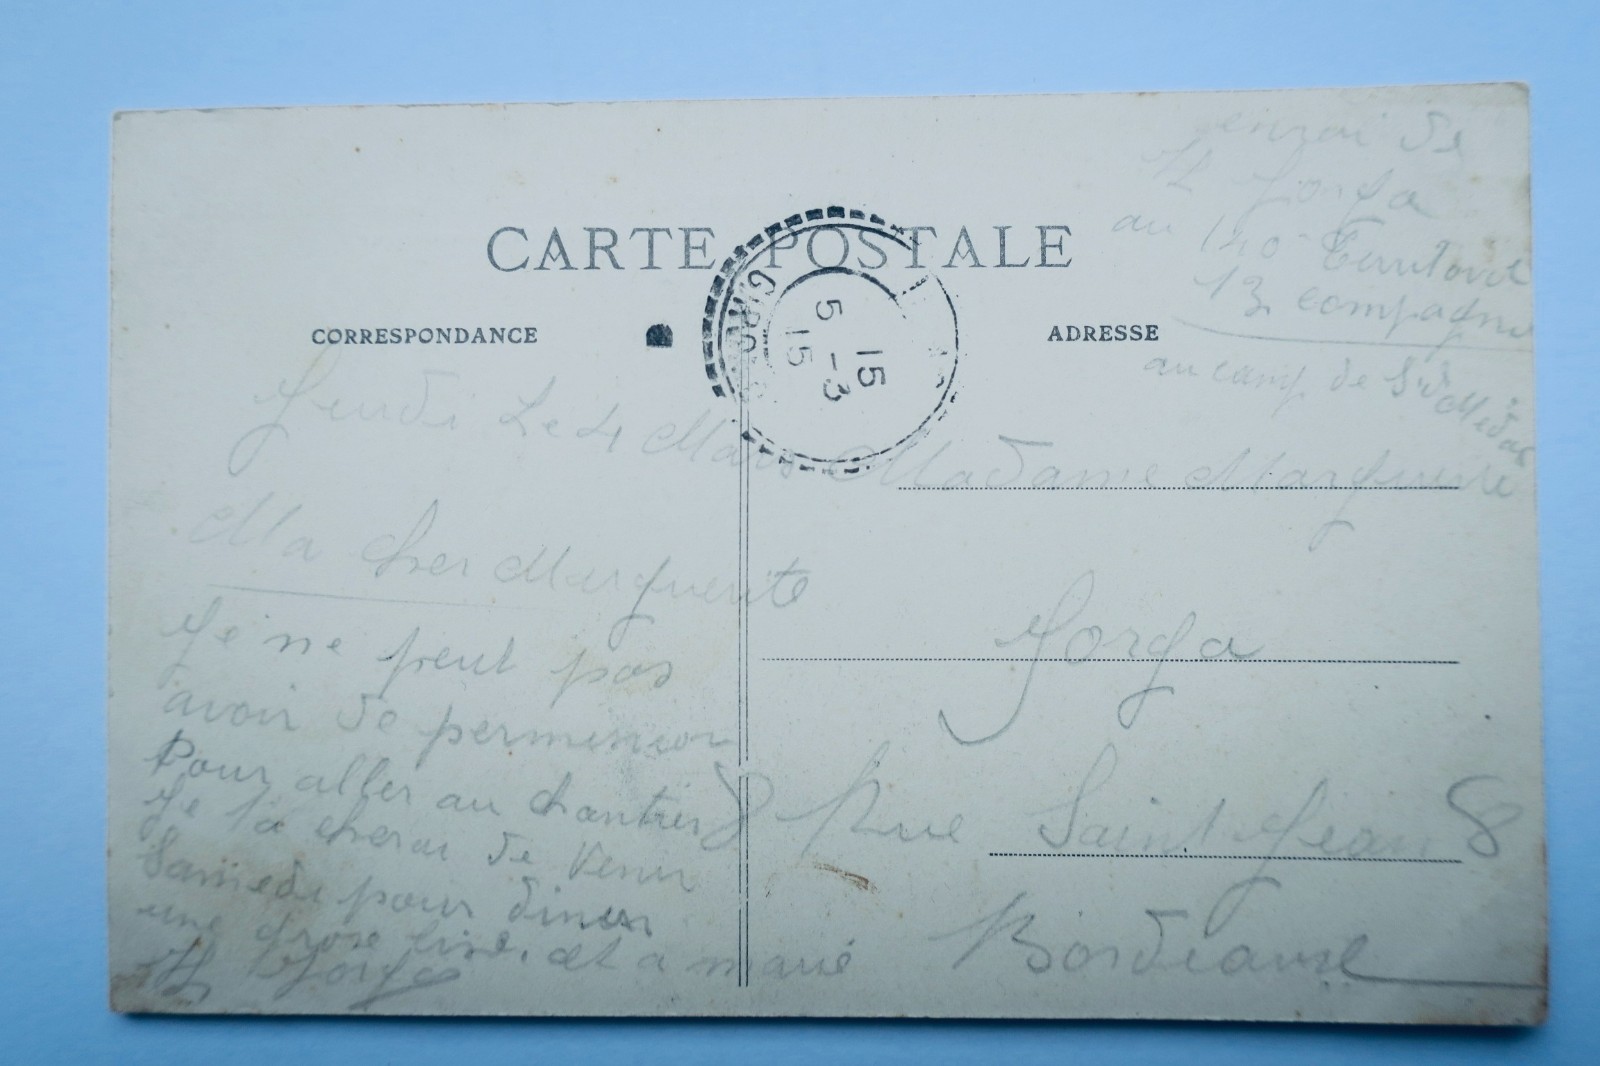 envoi de
H Jorga
au 140e Territorial
13 compagnie
au camp de St Medar
CARTE POSTALE
CORRESPONDANCE
ADRESSE
GIRONDE
15
5 -3
15
Jeudi Le 4 Mars
Ma cher Marguerite
Je ne peut pas
avoir de permission
Pour aller au chantier
Je de venir
Samedi pour diner
une grose bise. et a marie
H Jorga
Madame Marguerite
Jorga
8 Rue Saint Jean 8
Bordeause